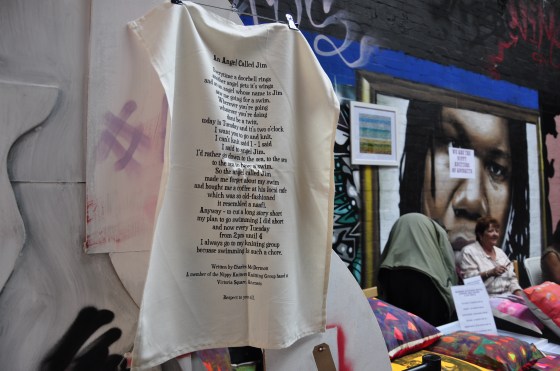 An Angel Called Jim
Everytime a doorbell rings
another angel gets it's wings
and so an angel whose name is Jim
saw me going for a swim.
"Wherever you're going
whatever you're doing
don't be a twit,
today is Tuesday and it's two o'clock
I want you to go and knit.
I can't knit said I - I said
I said to angel Jim.
I'd rather go down to the sea, to the sea
to the sea for a swim.
So the angel called Jim
made me forget about my swim
and bought me a coffee at his local cafe
which was so old-fashioned
it resembled a naafi.
Anyway - to cut a long story short
my plan to go swimming I did abort
and now every Tuesday
from 2pm until 4
I always go to my knitting group
because swimming is such a chore.
Written by
A member of the Nippy Knitters Knitting Group based in
Victoria Square,
Respect to
WE ARE THE
NIPPY
KNITTERS